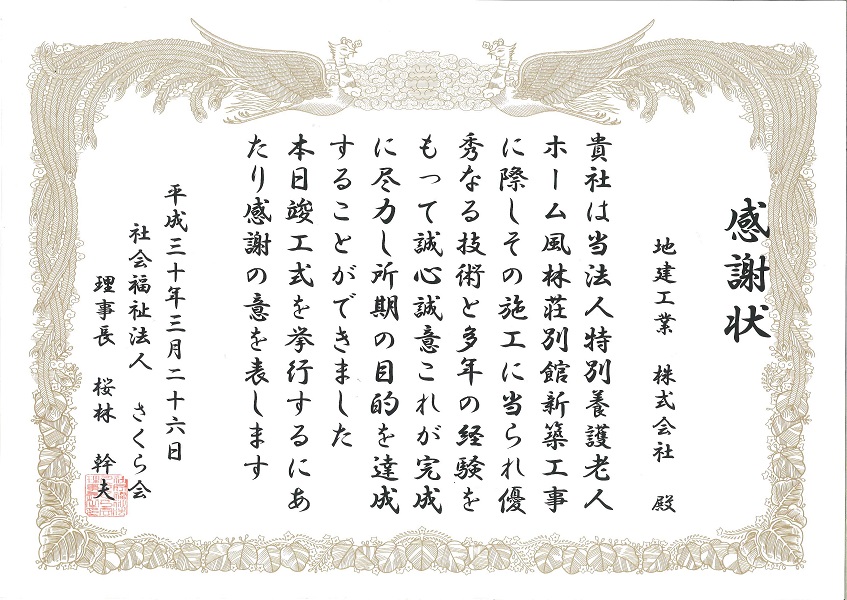 感謝状
地建工業　株式会社　殿
貴社は当法人特別養護老人
ホーム風林荘別館新築工事
に際しその施工に当られ優
秀なる技術と多年の経験を
もって誠心誠意これが完成
に尽力し所期の目的を達成
することができました
本日竣工式を挙行するにあ
たり感謝の意を表します
平成三十年三月二十六日
社会福祉法人　さくら会
理事長　桜林　幹夫